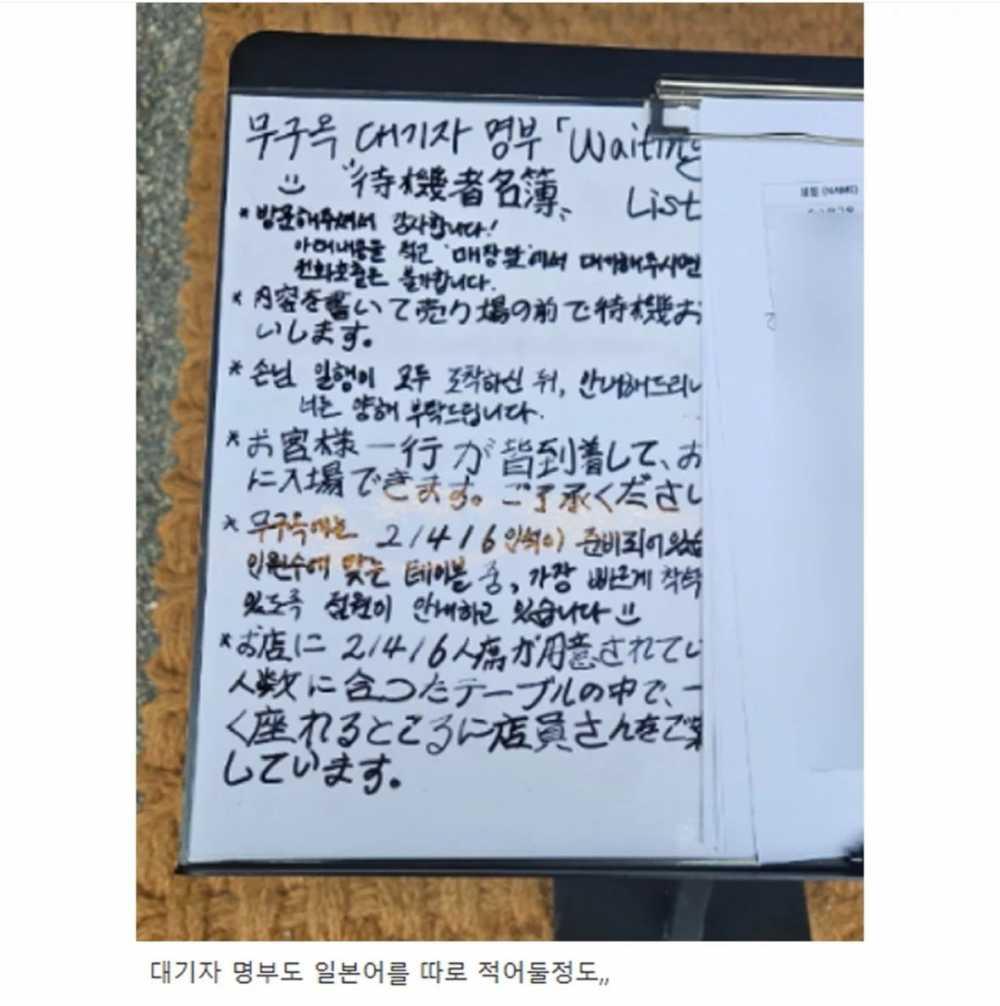 무구옥 대기자 명부 「Waiting
"待機者名簿" List
* 방문해주셔서 감사합니다!
아래내용을 적고 '매장앞'에서 대기해주시면
전화호출은 불가합니다.
* 内容を書いて売り場の前で待機お
いします。
* 손님 일행이 모두 도착하신 뒤, 안내해드리
너는 양해 부탁드립니다.
* お客様一行が皆到着して、お
に入場できます。ご了承くださ
* 무구옥에는 2/4/6 인석이 준비되어
인원수에 맞는 테이블 중, 가장 빠르게 착
있도록 점원이 안내하고 있습니다
* お店に 2/4/6人席が用意されて
人数に合つたテーブルの中で、
く座れるところに店員さんをご
しています。
성함 (NAME)
대기자 명부도 일본어를 따로 적어둘정도,,